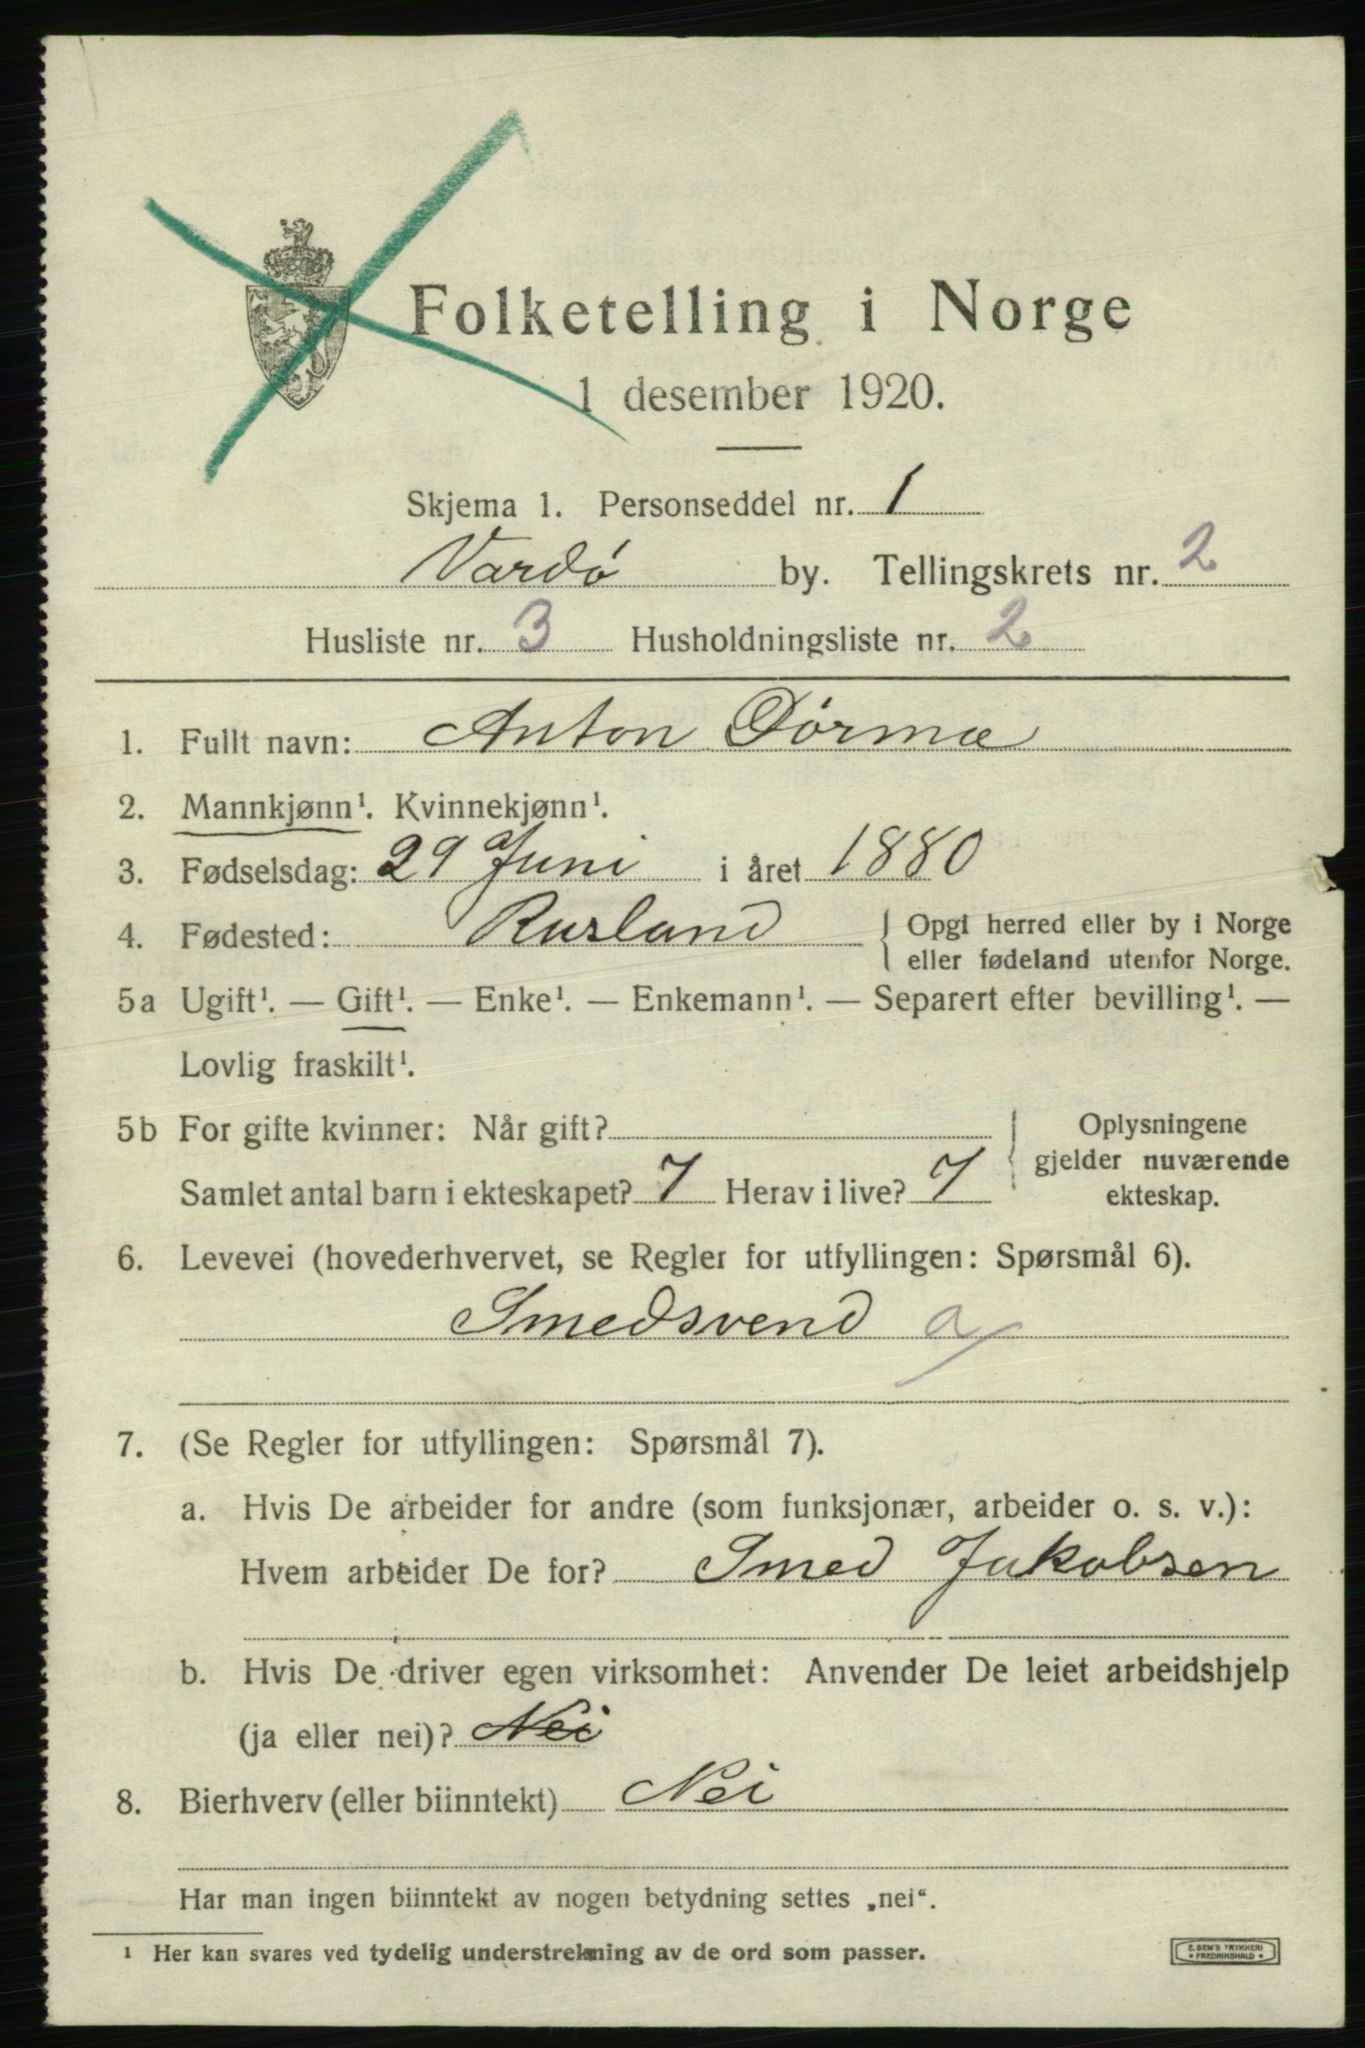 Folketelling i Norge
1 desember 1920.
Skjema 1. Personseddel nr. 1
Vardø by. Tellingskrets nr. 2
Husliste nr. 3 Husholdningsliste nr. 2
1. Fullt navn: Anton Dørmæ
2. Mannkjønn¹. Kvinnekjønn¹.
3. Fødselsdag: 29 Juni i året 1880
4. Fødested: Rusland { Opgi herred eller by i Norge
eller fødeland utenfor Norge.
5a Ugift¹. — Gift¹. — Enke¹. — Enkemann¹. — Separert efter bevilling¹. —
Lovlig fraskilt¹.
5b For gifte kvinner: Når gift? { Oplysningene
gjelder nuværende
Samlet antal barn i ekteskapet? 7 Herav i live? 7 ekteskap.
6. Levevei (hovederhvervet, se Regler for utfyllingen: Spørsmål 6).
Smedsvend a
7. (Se Regler for utfyllingen: Spørsmål 7).
a. Hvis De arbeider for andre (som funksjonær, arbeider o. s. v.):
Hvem arbeider De for? Smed Jakobsen
b. Hvis De driver egen virksomhet: Anvender De leiet arbeidshjelp
(ja eller nei)? Nei
8. Bierhverv (eller biinntekt) Nei
Har man ingen biinntekt av nogen betydning settes „nei“.
¹ Her kan svares ved tydelig understrekning av de ord som passer.
E. SEM'S TRYKKERI
• FREDRIKSHALD •